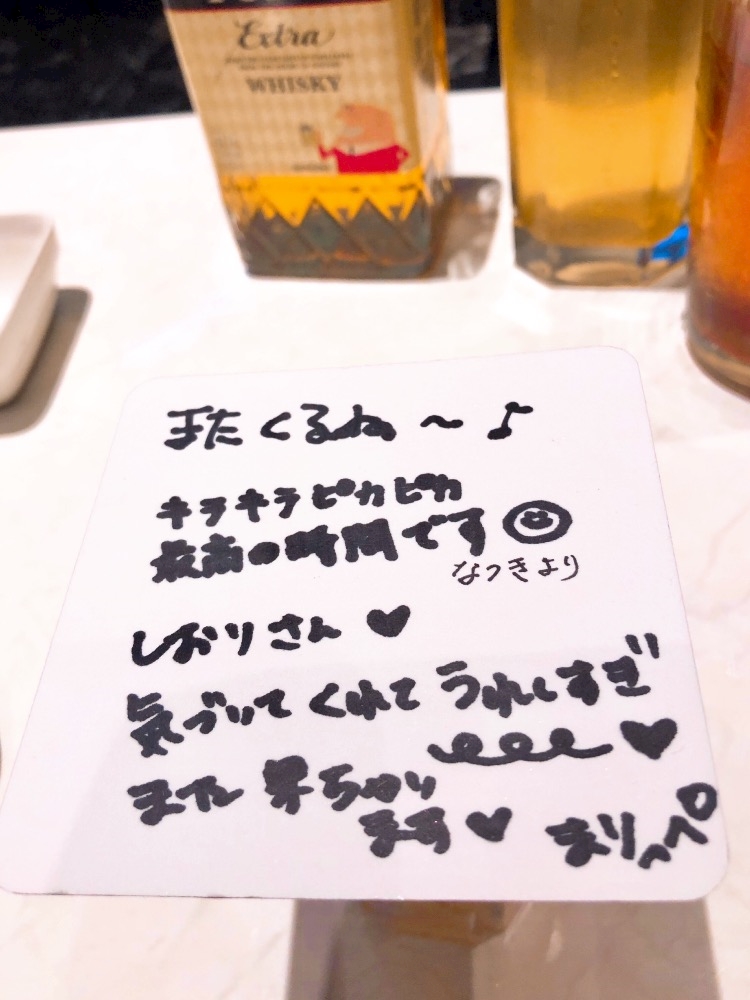 Extra
WHISKY
またくるね〜♪
キラキラピカピカ
最高の時間です
なつきより
しおりさん♥
気づいてくれてうれしすぎ
♥
また来ちゃい
ます♥ まりっぺ